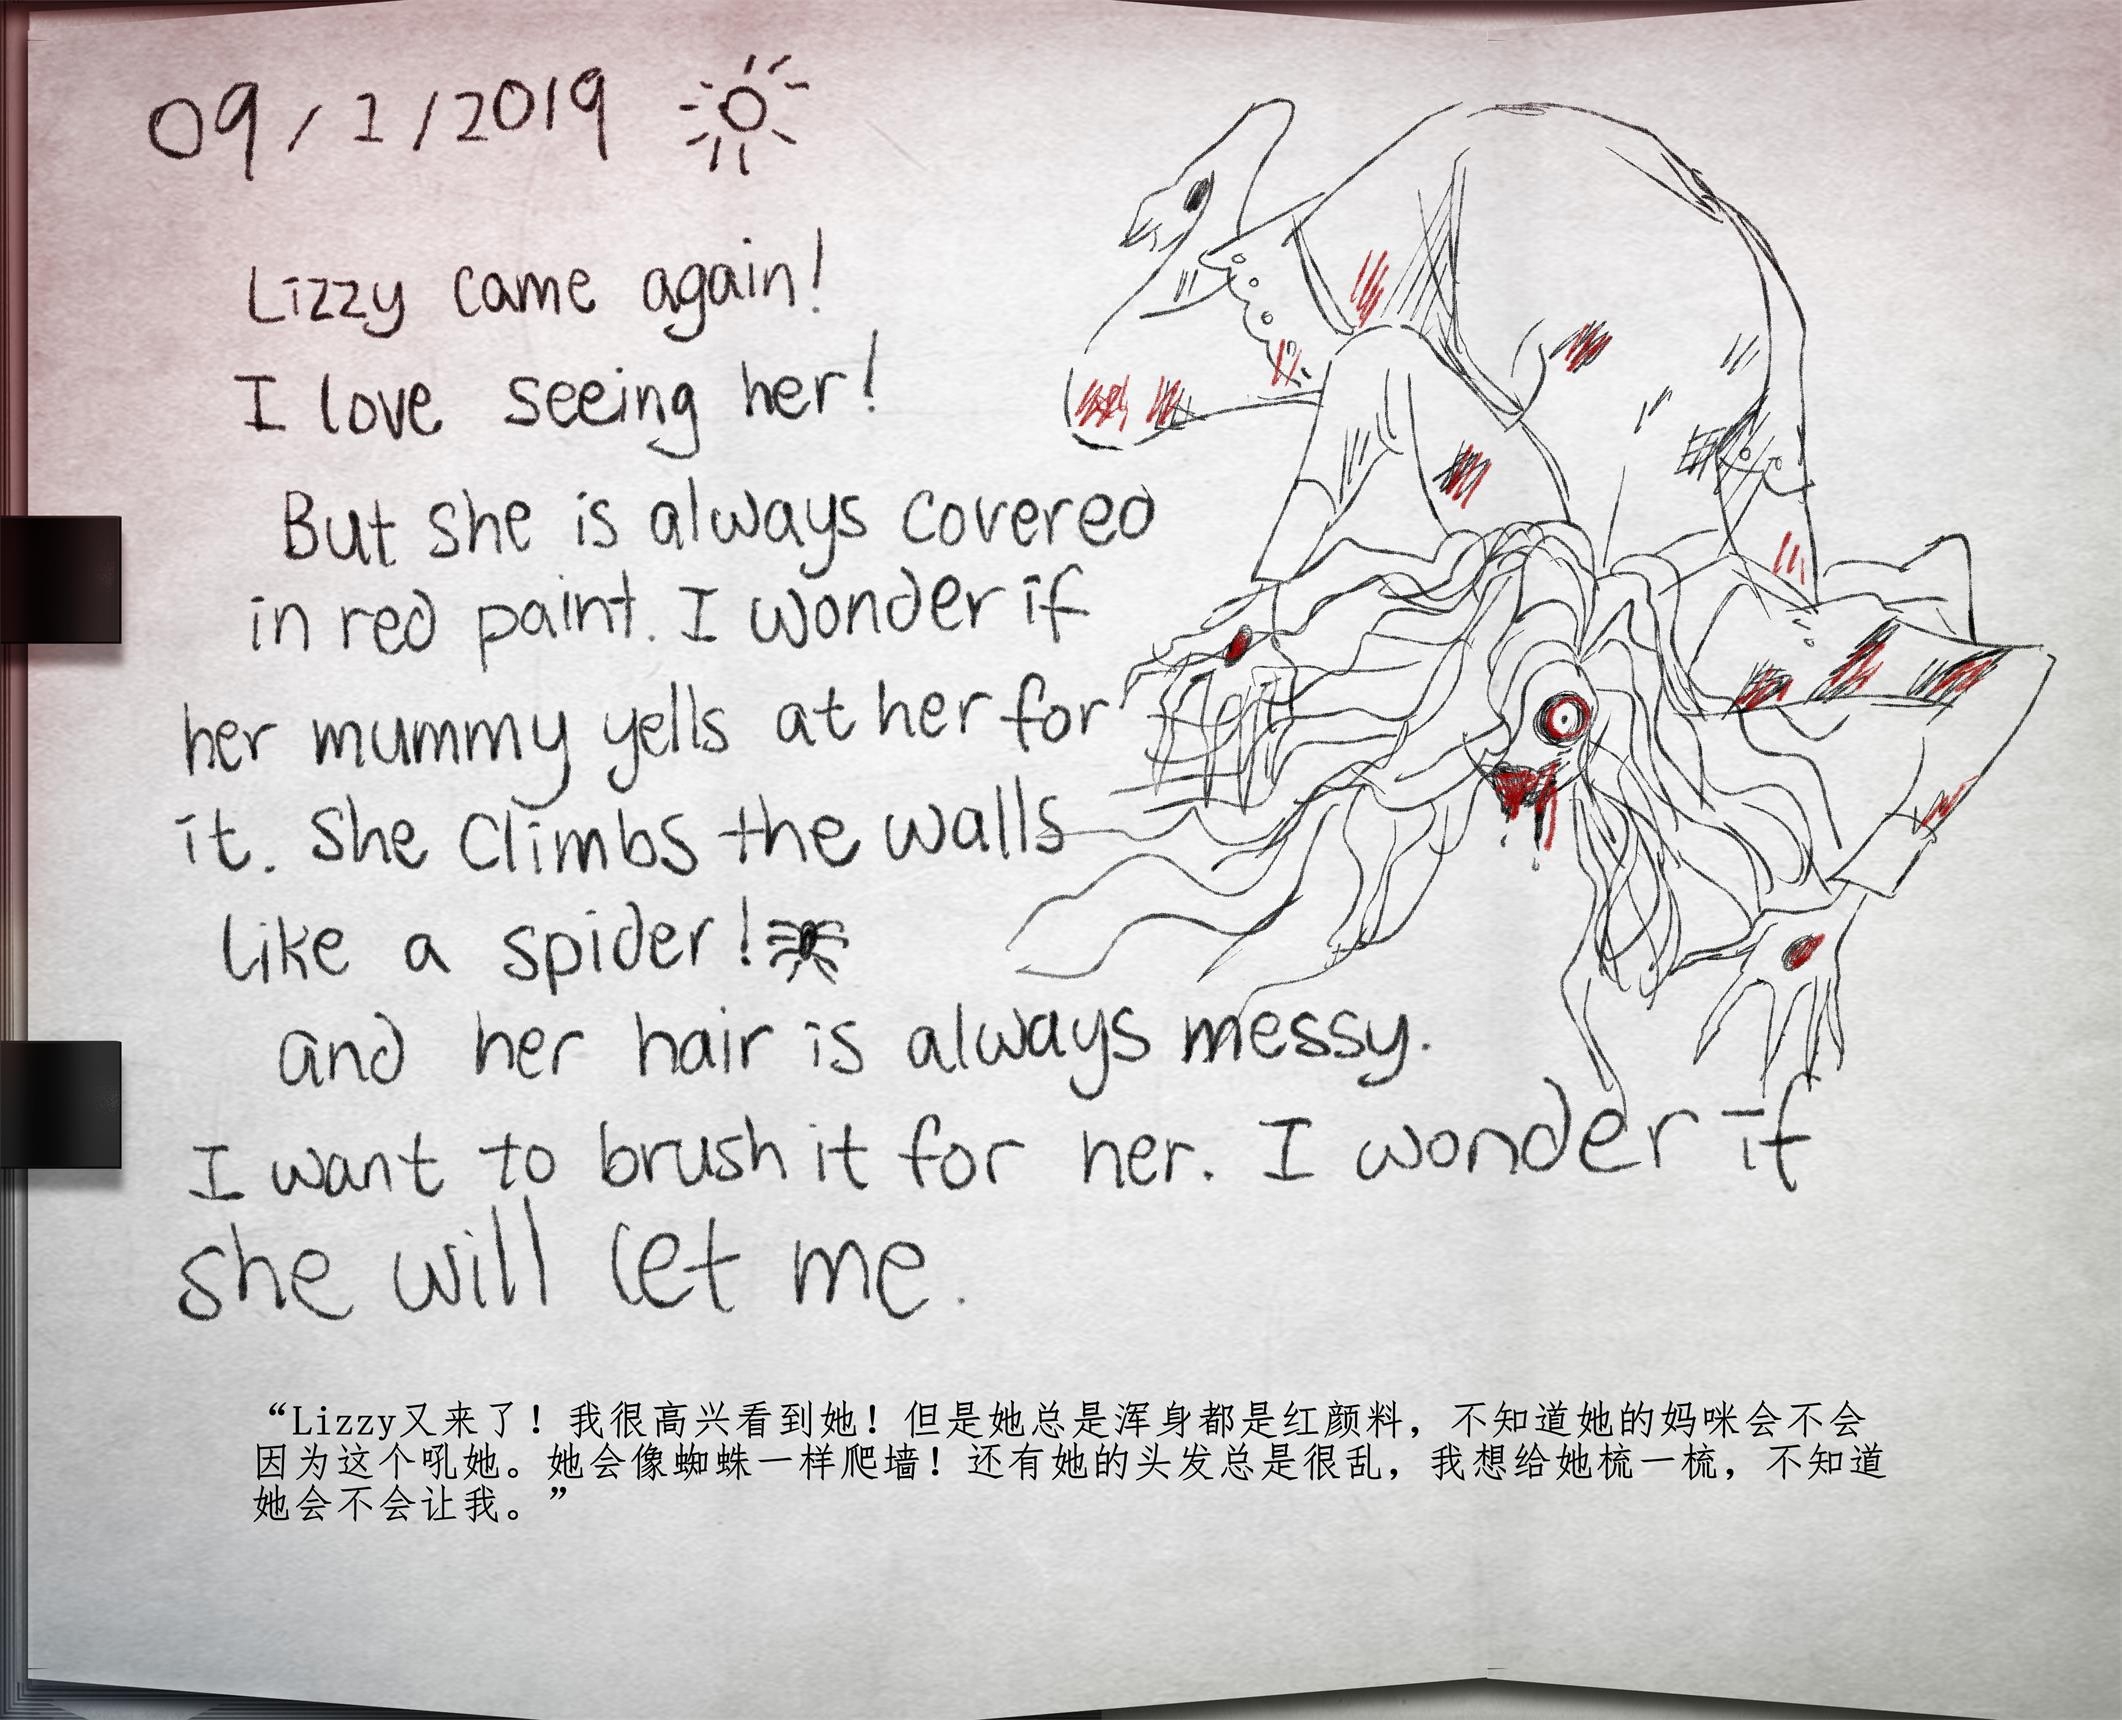 09/1/2019
Lizzy came again!
I love seeing her!
But she is always covered
in red paint. I wonder if
her mummy yells at her for
it. She climbs the walls
like a spider!
and her hair is always messy.
I want to brush it for her. I wonder if
she will let me.
“Lizzy又来了！我很高兴看到她！但是她总是浑身都是红颜料，不知道她的妈咪会不会
因为这个吼她。她会像蜘蛛一样爬墙！还有她的头发总是很乱，我想给她梳一梳，不知道
她会不会让我。”